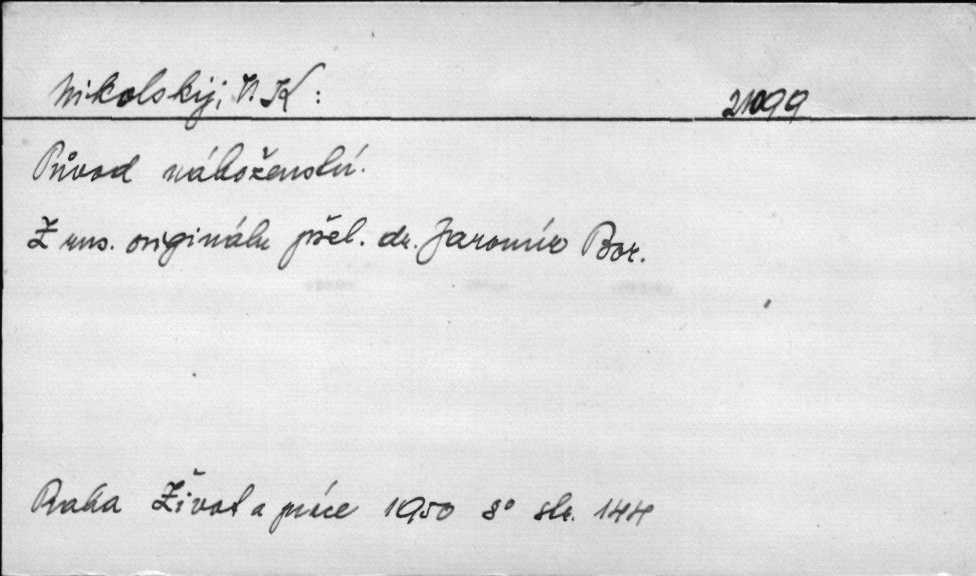 Nikolskij, N. K: 21099
Původ náboženství.
Z rus. originálu přel. dr. Jaromír Bor.
Praha Život a práce 1950 8° str. 144